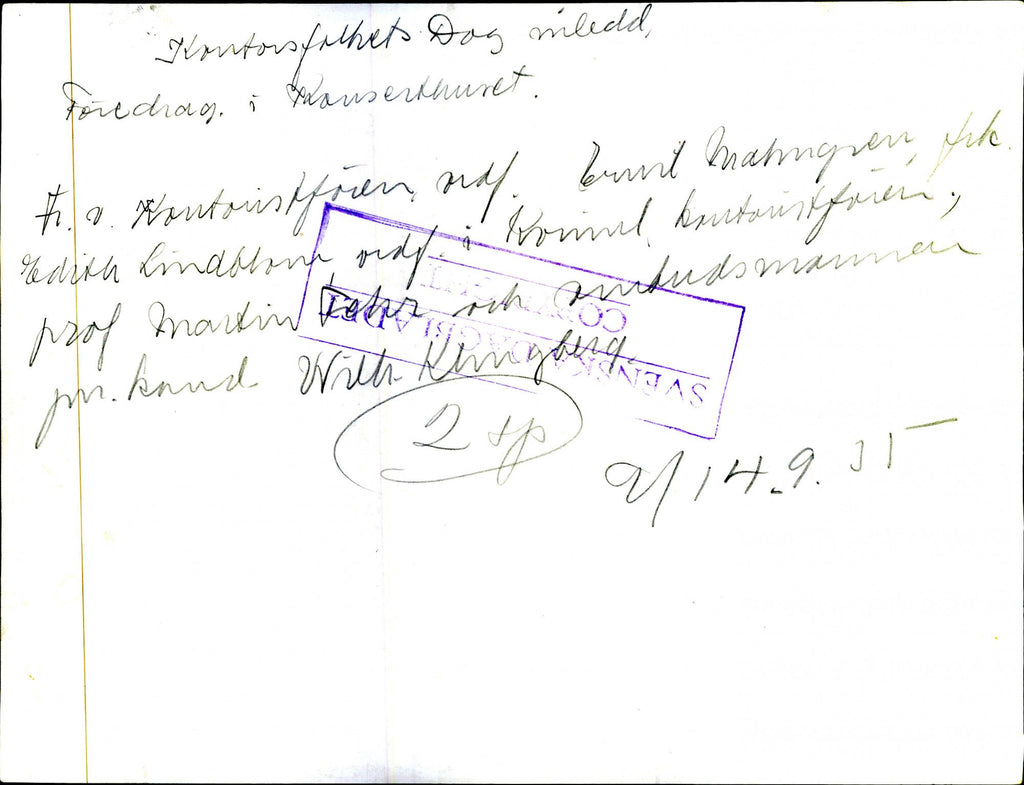 Kontorsfolkets Dag inledd,
Föredrag. i Konserthuset.
Fr. v. Kontoristfören, ordf. Ernst Malmgren, frk.
Edith Lindblom, ordf. i Komml. kontoristfören,
prof Martin Fehr och ombudsmannen
jur. kand. Wilh. Klingberg.
2 sp
14.9.35
SVENSKA DAGBLADET
COPYRIGHT